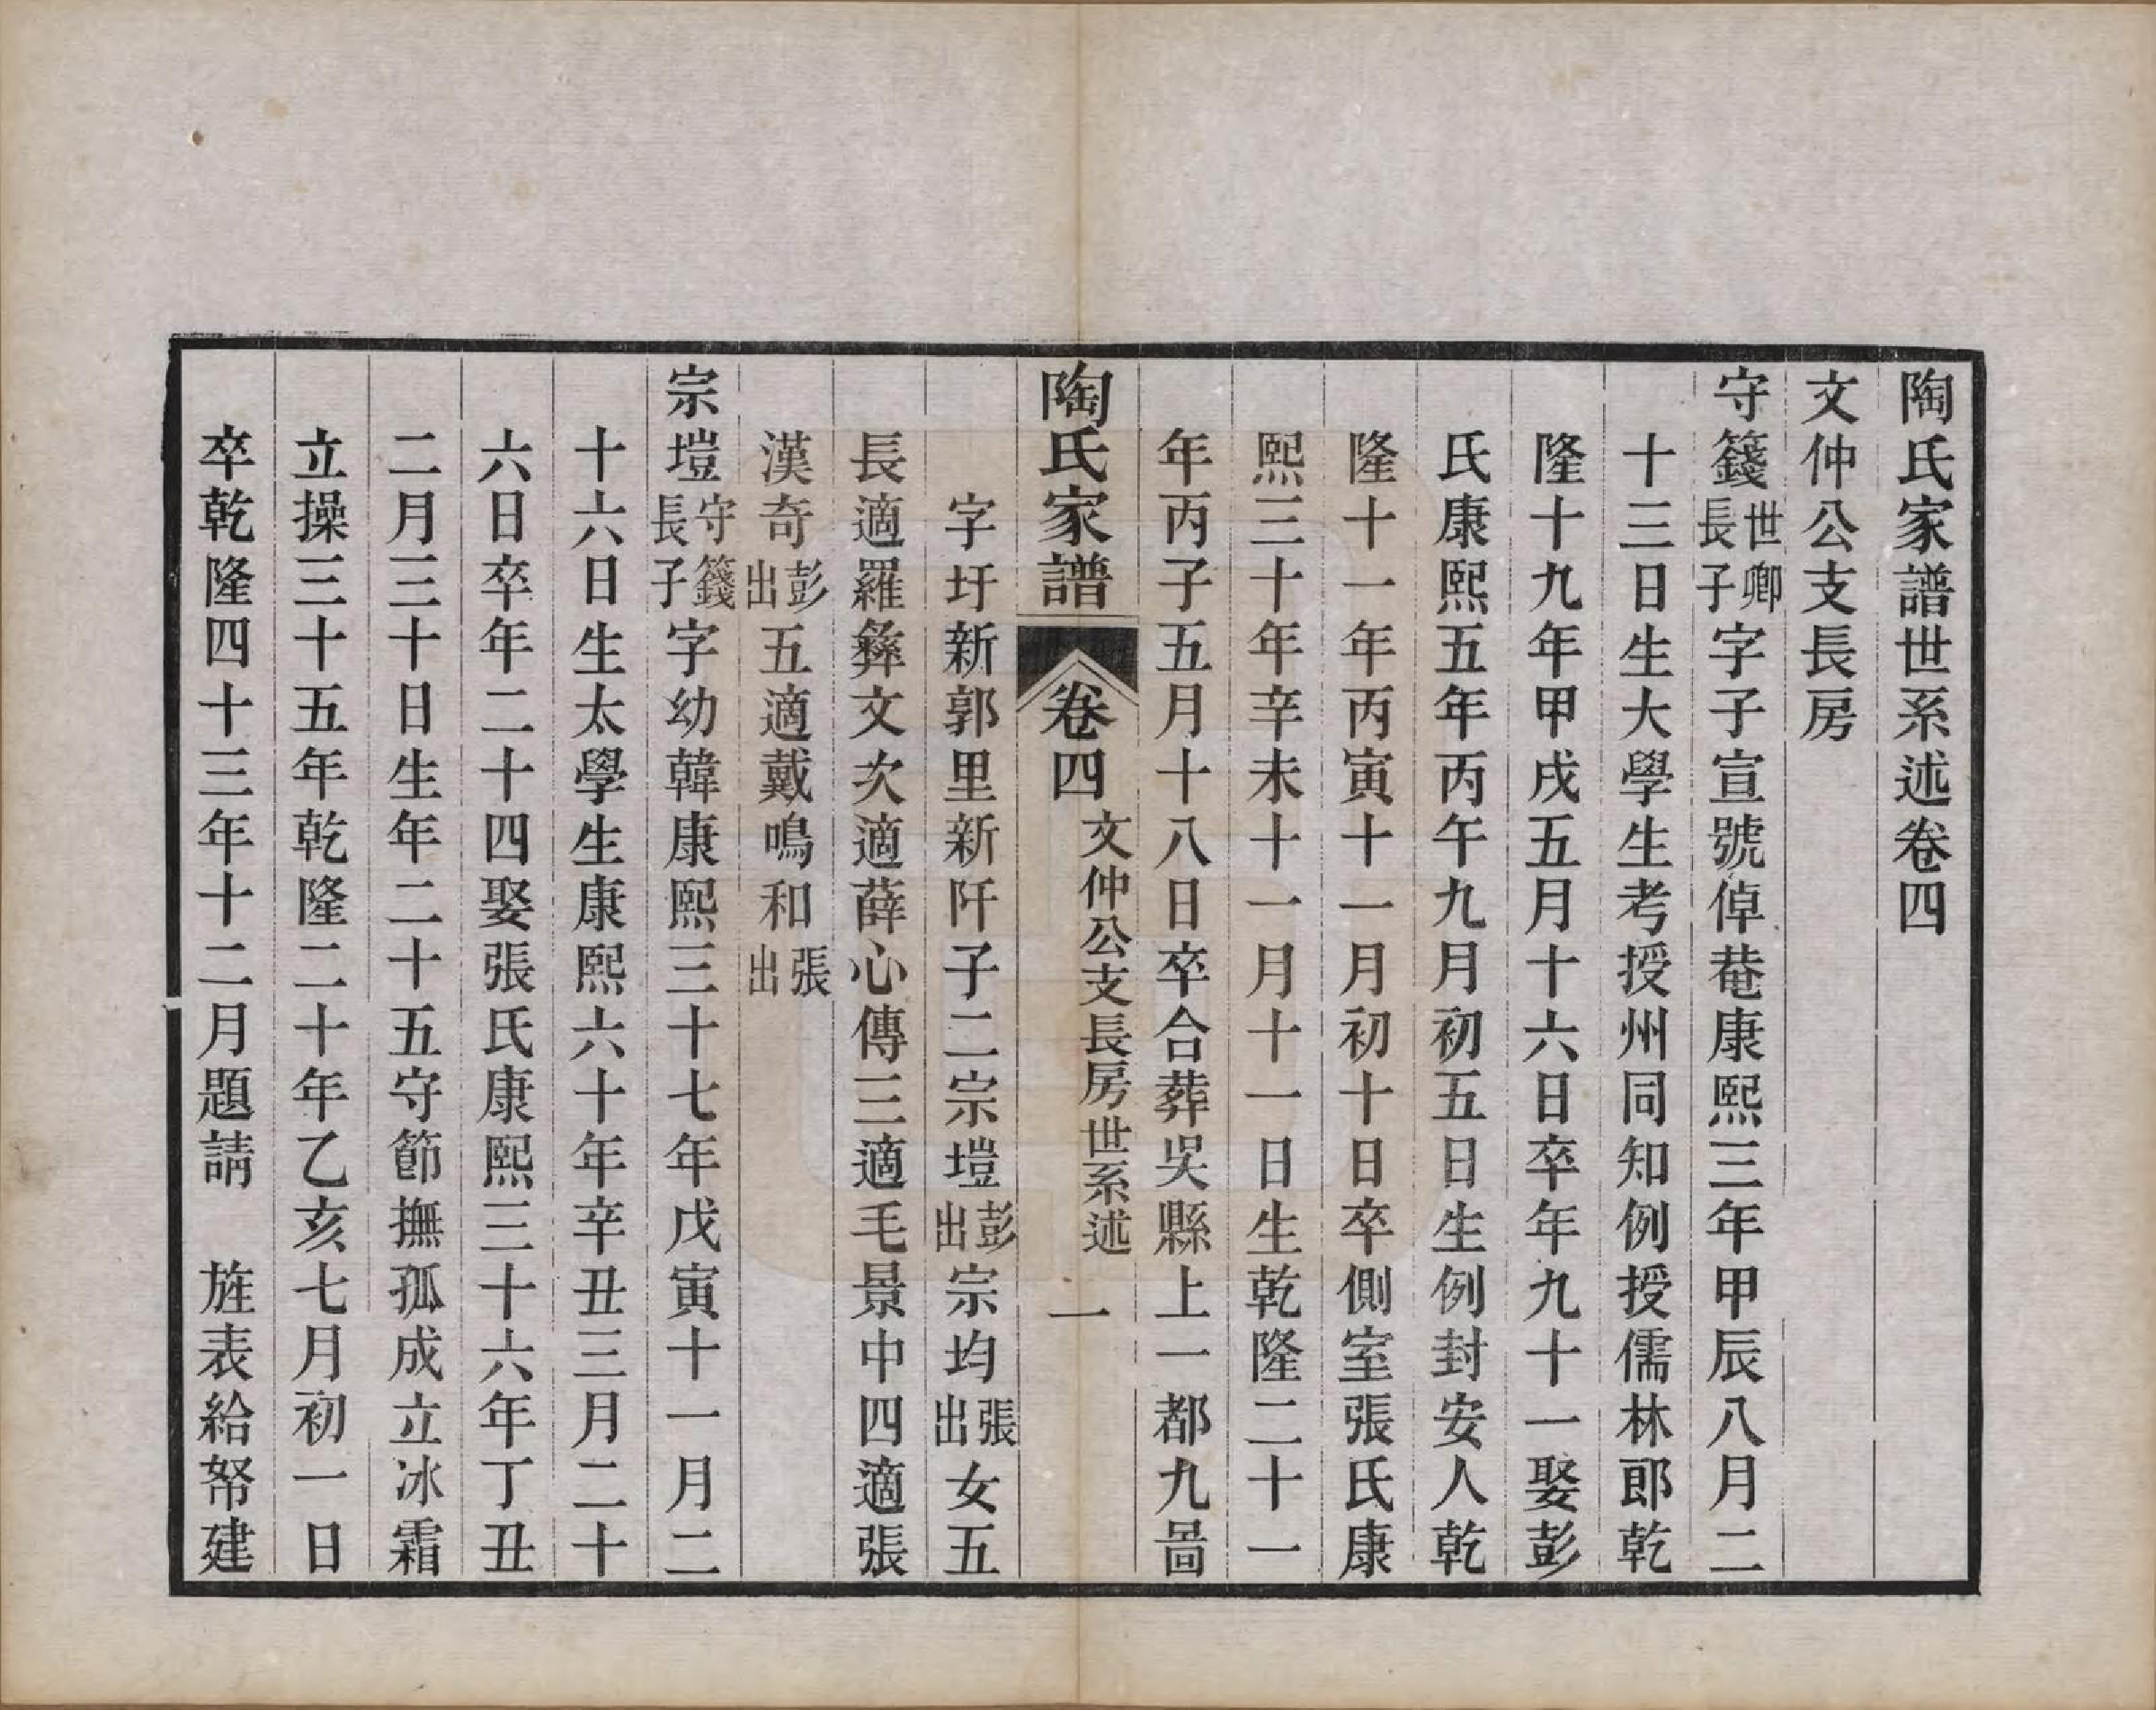 陶氏家譜世系述卷四
文仲公支長房
守籛世卿長子字子宣號倬菴康熙三年甲辰八月二
十三日生大學生考授州同知例授儒林郎乾
隆十九年甲戌五月十六日卒年九十一娶彭
氏康熙五年丙午九月初五日生例封安人乾
隆十一年丙寅十一月初十日卒側室張氏康
熙三十年辛未十一月十一日生乾隆二十一
年丙子五月十八日卒合葬吳縣上一都九啚
陶氏家譜 卷四 文仲公支長房世系述 一
字圩新郭里新阡子二宗塏彭出宗均張出女五
長適羅彝文次適薛心傳三適毛景中四適張
漢奇彭出五適戴鳴和張出
宗塏守籛長子字幼韓康熙三十七年戊寅十一月二
十六日生太學生康熙六十年辛丑三月二十
六日卒年二十四娶張氏康熙三十六年丁丑
二月三十日生年二十五守節撫孤成立冰霜
立操三十五年乾隆二十年乙亥七月初一日
卒乾隆四十三年十二月題請 旌表給帑建